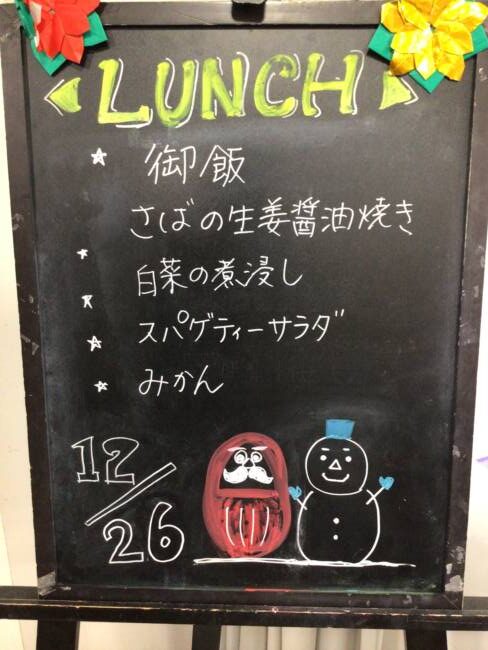 LUNCH
御飯
さばの生姜醤油焼き
白菜の煮浸し
スパゲティーサラダ
みかん
12/26